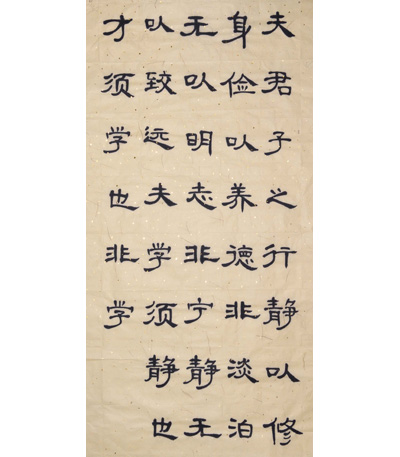 夫君子之行静以修
身俭以养德非淡泊
无以明志非宁静无
以致远夫学须静也
才须学也非学